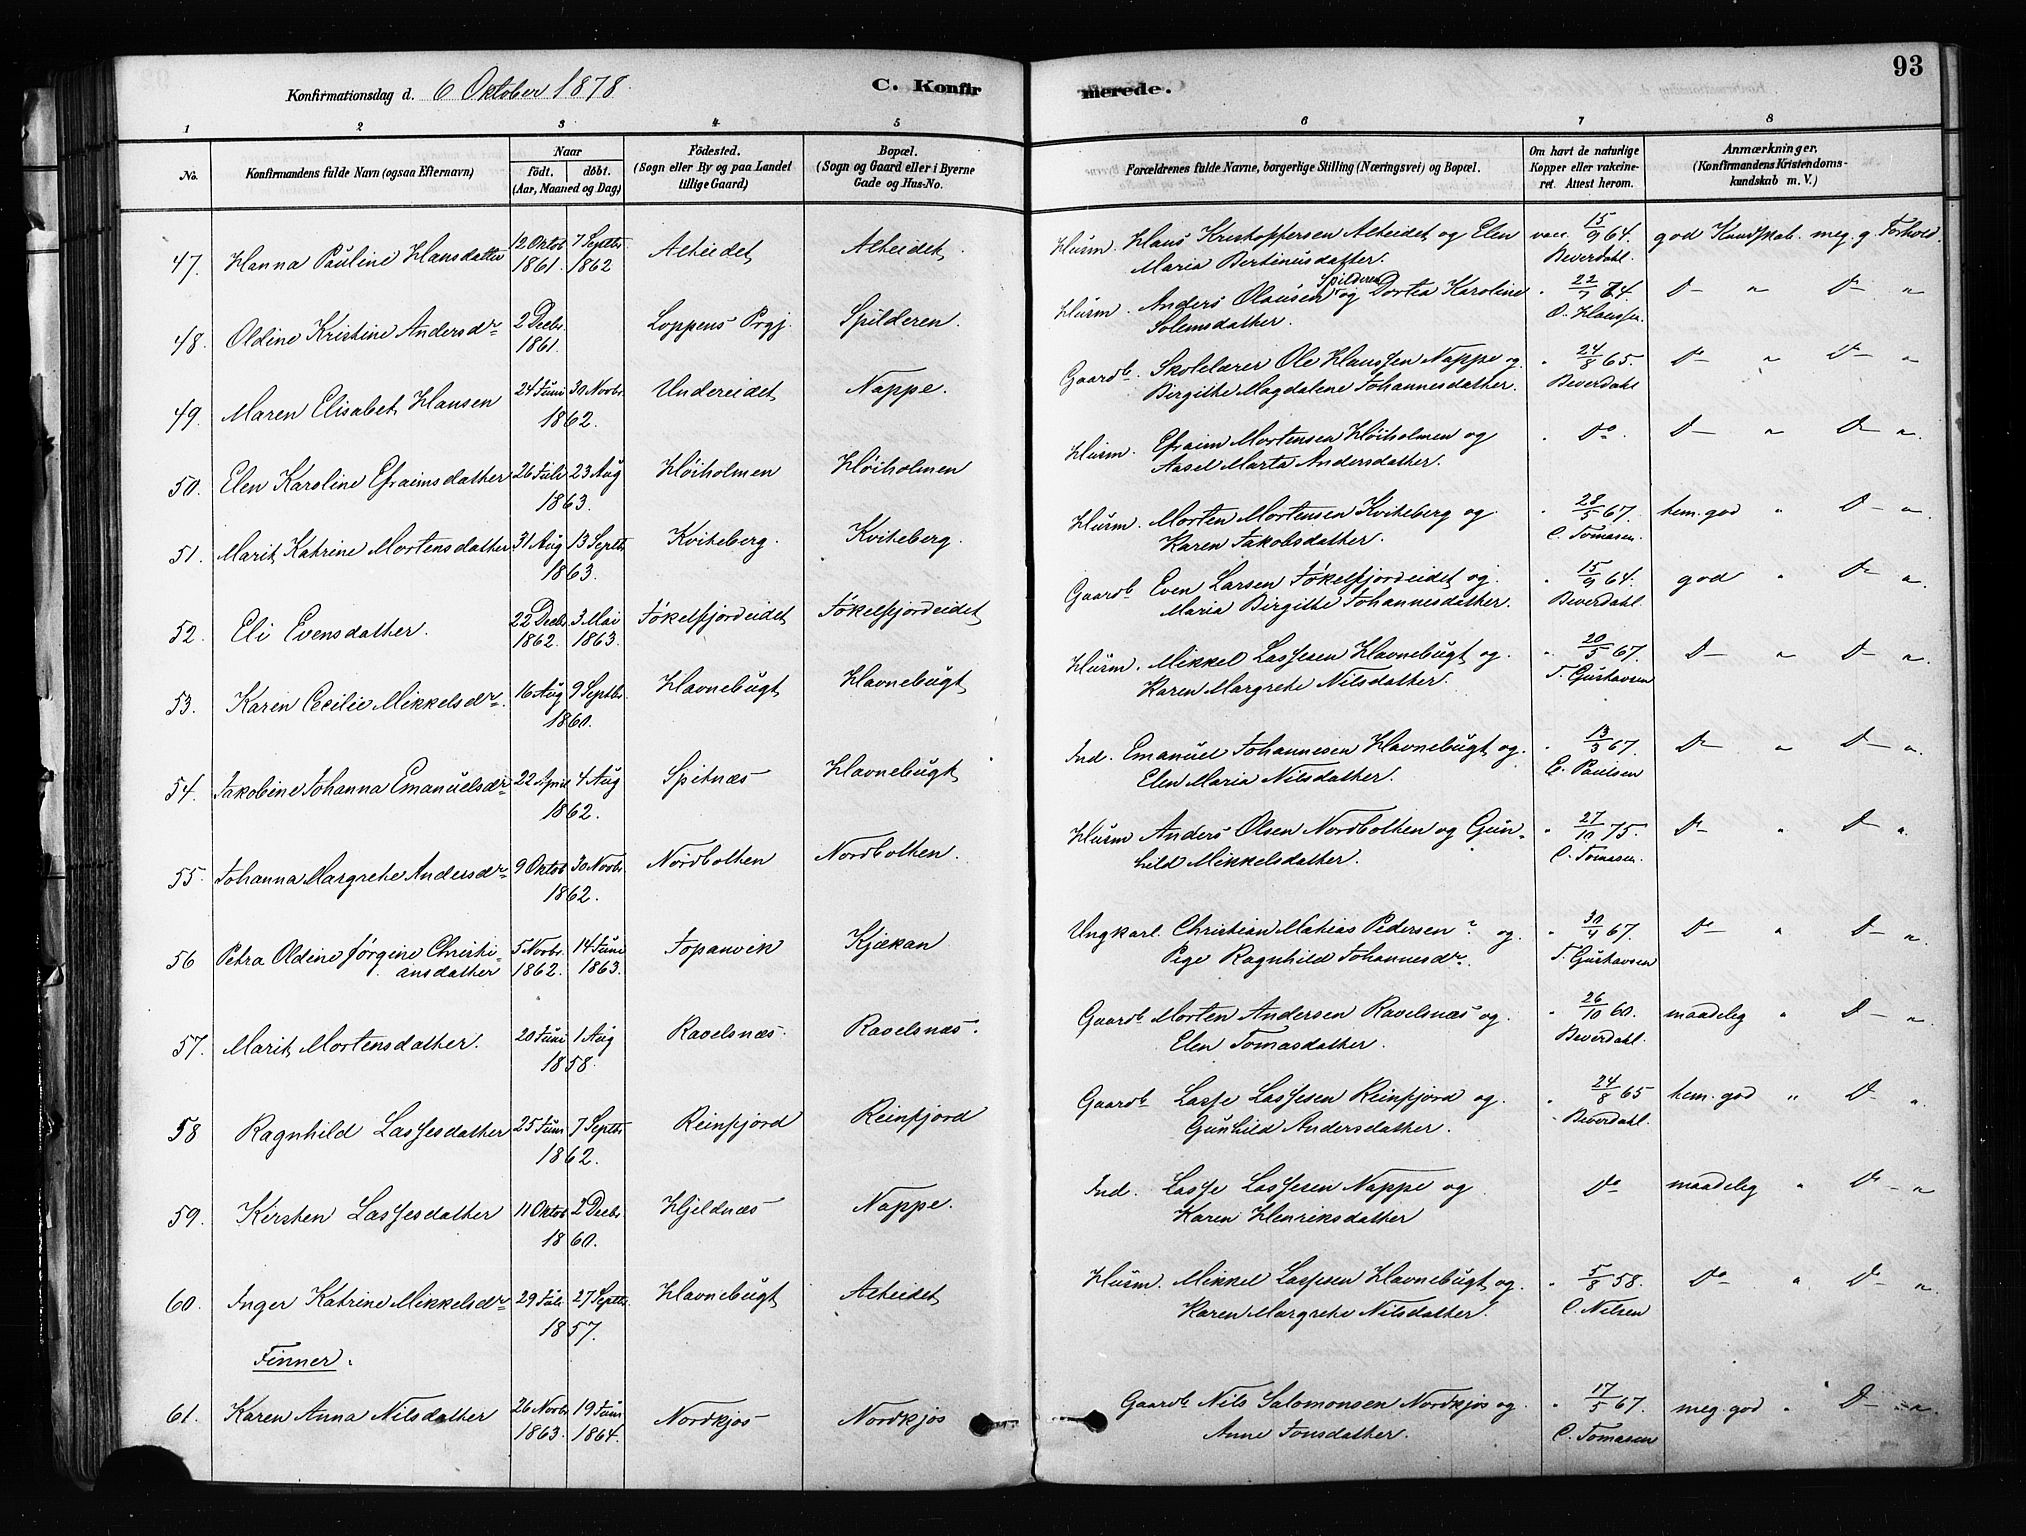 93
Konfirmationsdag d. 6 Oktober 1878. C. Konfirmerede.
1 2 3 4 5 6 7 8
No. Konfirmandens fulde Navn (ogsaa Efternavn) Naar født. døbt. (Aar, Maaned og Dag) Födested. (Sogn eller By og paa Landet tillige Gaard) Bopæl. (Sogn og Gaard eller i Byerne Gade og Hus-No. Forældrenes fulde Navne, borgerlige Stilling (Næringsvei) og Bopæl. Om havt de naturlige Kopper eller vakcineret. Attest herom. Anmærkninger. (Konfirmandens Kristendomskundskab m. V.)
47. Hanna Pauline Hansdatter 12 Oktob 1861. 7 Septbr 1862 Alteidet Alteidet. Husm. Hans Kristoffersen Alteidet og Elen vacc. 15/9 64. god Kundskab. meg. g. Forhold.
Maria Bertinusdatter. Beverdahl.
48. Oldine Kristine Andersdr 2 Decbr. 1861. Loppens Prgj. Spilderen. Husm. Anders Olausen Spilderen og Dortea Karoline " 22/7 74. D— " D— "
Solemsdatter. O. Hansen.
49. Maren Elisabet Hansen 24 Juni 30 Novbr. 1862. Undereidet Nappe. Gaardb. Skolelærer Ole Hanssen Nappe og " 24/8 65. D— " D— "
Birgitte Magdalene Johannesdatter. Beverdahl
50. Elen Karoline Efraimsdatter 26 Juli 23 Aug 1863. Høiholmen Høiholmen Husm. Efraim Mortensen Høiholmen og " Do. D— " D— "
Aasel Marta Andersdatter.
51. Marit Katrine Mortensdatter 31 Aug 13 Septbr 1863. Kviteberg. Kviteberg. Husm. Morten Mortensen Kviteberg og " 28/5 67. tem. god " D— "
Karen Jakobsdatter. C. Tomasen.
52. Eli Evensdatter. 22 Decbr. 1862. 3 Mai 1863. Jøkelfjordeidet Jøkelfjordeidet Gaardb Even Larsen Jøkelfjordeidet og " 15/9 64. god " D— "
Maria Birgithe Johannesdatter. Beverdahl.
53. Karen Cecilie Mikkelsdr. 16 Aug 9 Septbr. 1860. Havnebugt Havnebugt Husm. Mikkel Lassesen Havnebugt og " 20/5 67. D— " D— "
Karen Margrethe Nilsdatter. T. Gustavsen
54. Jakobine Johanna Emanuelsdr 22 April 4 Aug 1862. Spitnæs Havnebugt Ind. Emanuel Johannesen Havnebugt og " 13/3 67. D— " D— "
Elen Maria Nilsdatter. E. Paulsen
55. Johanna Margrethe Andersdr 9 Oktob 30 Novbr. 1862. Nordbotten Nordbotten. Husm Anders Olsen Nordbotten og Gun- " 27/10 75. D— " D— "
hild Mikkelsdatter. C. Tomasen.
56 Petra Oldine Jørgine Christi- 5 Novbr. 1862. 14 Juni 1863. Topanvik Kjækan Ungkarl. Christian Matias Pedersen ? og " 30/4 67. D— " D— "
ansdatter Pige Ragnhild Johannesdr. T. Gustavsen
57. Marit Mortensdatter. 20 Juni 1 Aug 1858. Ravelsnæs. Ravelsnæs. Gaardb. Morten Andersen Ravelsnæs og " 26/10 60. maadelig " D— "
Elen Tomasdatter. Beverdahl.
58 Ragnhild Lassesdatter 25 Juni 7 Septbr 1862. Reinfjord Reinfjord Gaardb Lasse Lassesen Reinfjord og " 24/8 65 tem. god " D— "
Gunhild Andersdatter. Beverdahl.
59. Kirsten Lassesdatter 11 Oktob 2 Decbr. 1860. Hjeldnæs Nappe. Ind. Lasse Lassesen Nappe og Do maadelig " D— "
Karen Henriksdatter
60. Inger Katrine Mikkelsdr 29 Juli 27 Septbr. 1857. Havnebugt Alteidet Husm. Mikkel Lassesen Havnebugt og " 5/8 58. Do " D— "
Karen Margrethe Nilsdatter. C. Nilsen
Finner.
61. Karen Anna Nilsdatter 26 Novbr. 1863. 19 Juni 1864. Nordkjos Nordkjos Gaardb Nils Salomonsen Nordkjos og " 17/5 67. meg. god " D— "
Anne Jonsdatter. C. Tomasen